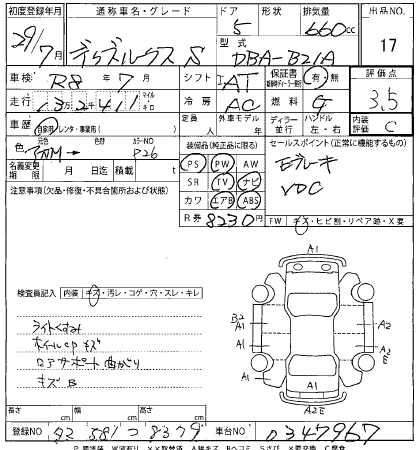 初度登録年月 通称車名・グレード ドア 形状 排気量 出品NO.
29/7月 デイズルークス S 5 660cc 17
型式 DBA-B21A
車検 R8年7月 シフト AT 保証書 有・無 評価点
走行 13万2千411 マイル キロ 冷房 AC 燃料 G 3.5
車歴 自家用・レンタ・事業用( ) 定員 人 外車モデル 年 ディーラー 並行 ハンドル 左・右 内装評価 C
色 元色 色替 カラーNO P26
装備品(純正品に限る) セールスポイント(正常に機能するもの)
名義変更期限 月 日迄 積載 t PS PW AW Eブレーキ
注意事項(欠品・修復・不具合箇所および状態) SR TV ナビ VDC
カワ エアB ABS
R券 8230円 FW キズ・ヒビ割・リペア跡・X要
A1
検査員記入 内装 キズ・汚レ・コゲ・穴・スレ・キレ
ライトくすみ B2 A1 A1 A2
ホイルcpキズ
ロアサポート曲がり A1 A1 A2 E
キズB A1
A2E
長さ cm 幅 cm 高さ cm
登録NO 582 つ 8379 車台NO 0347967